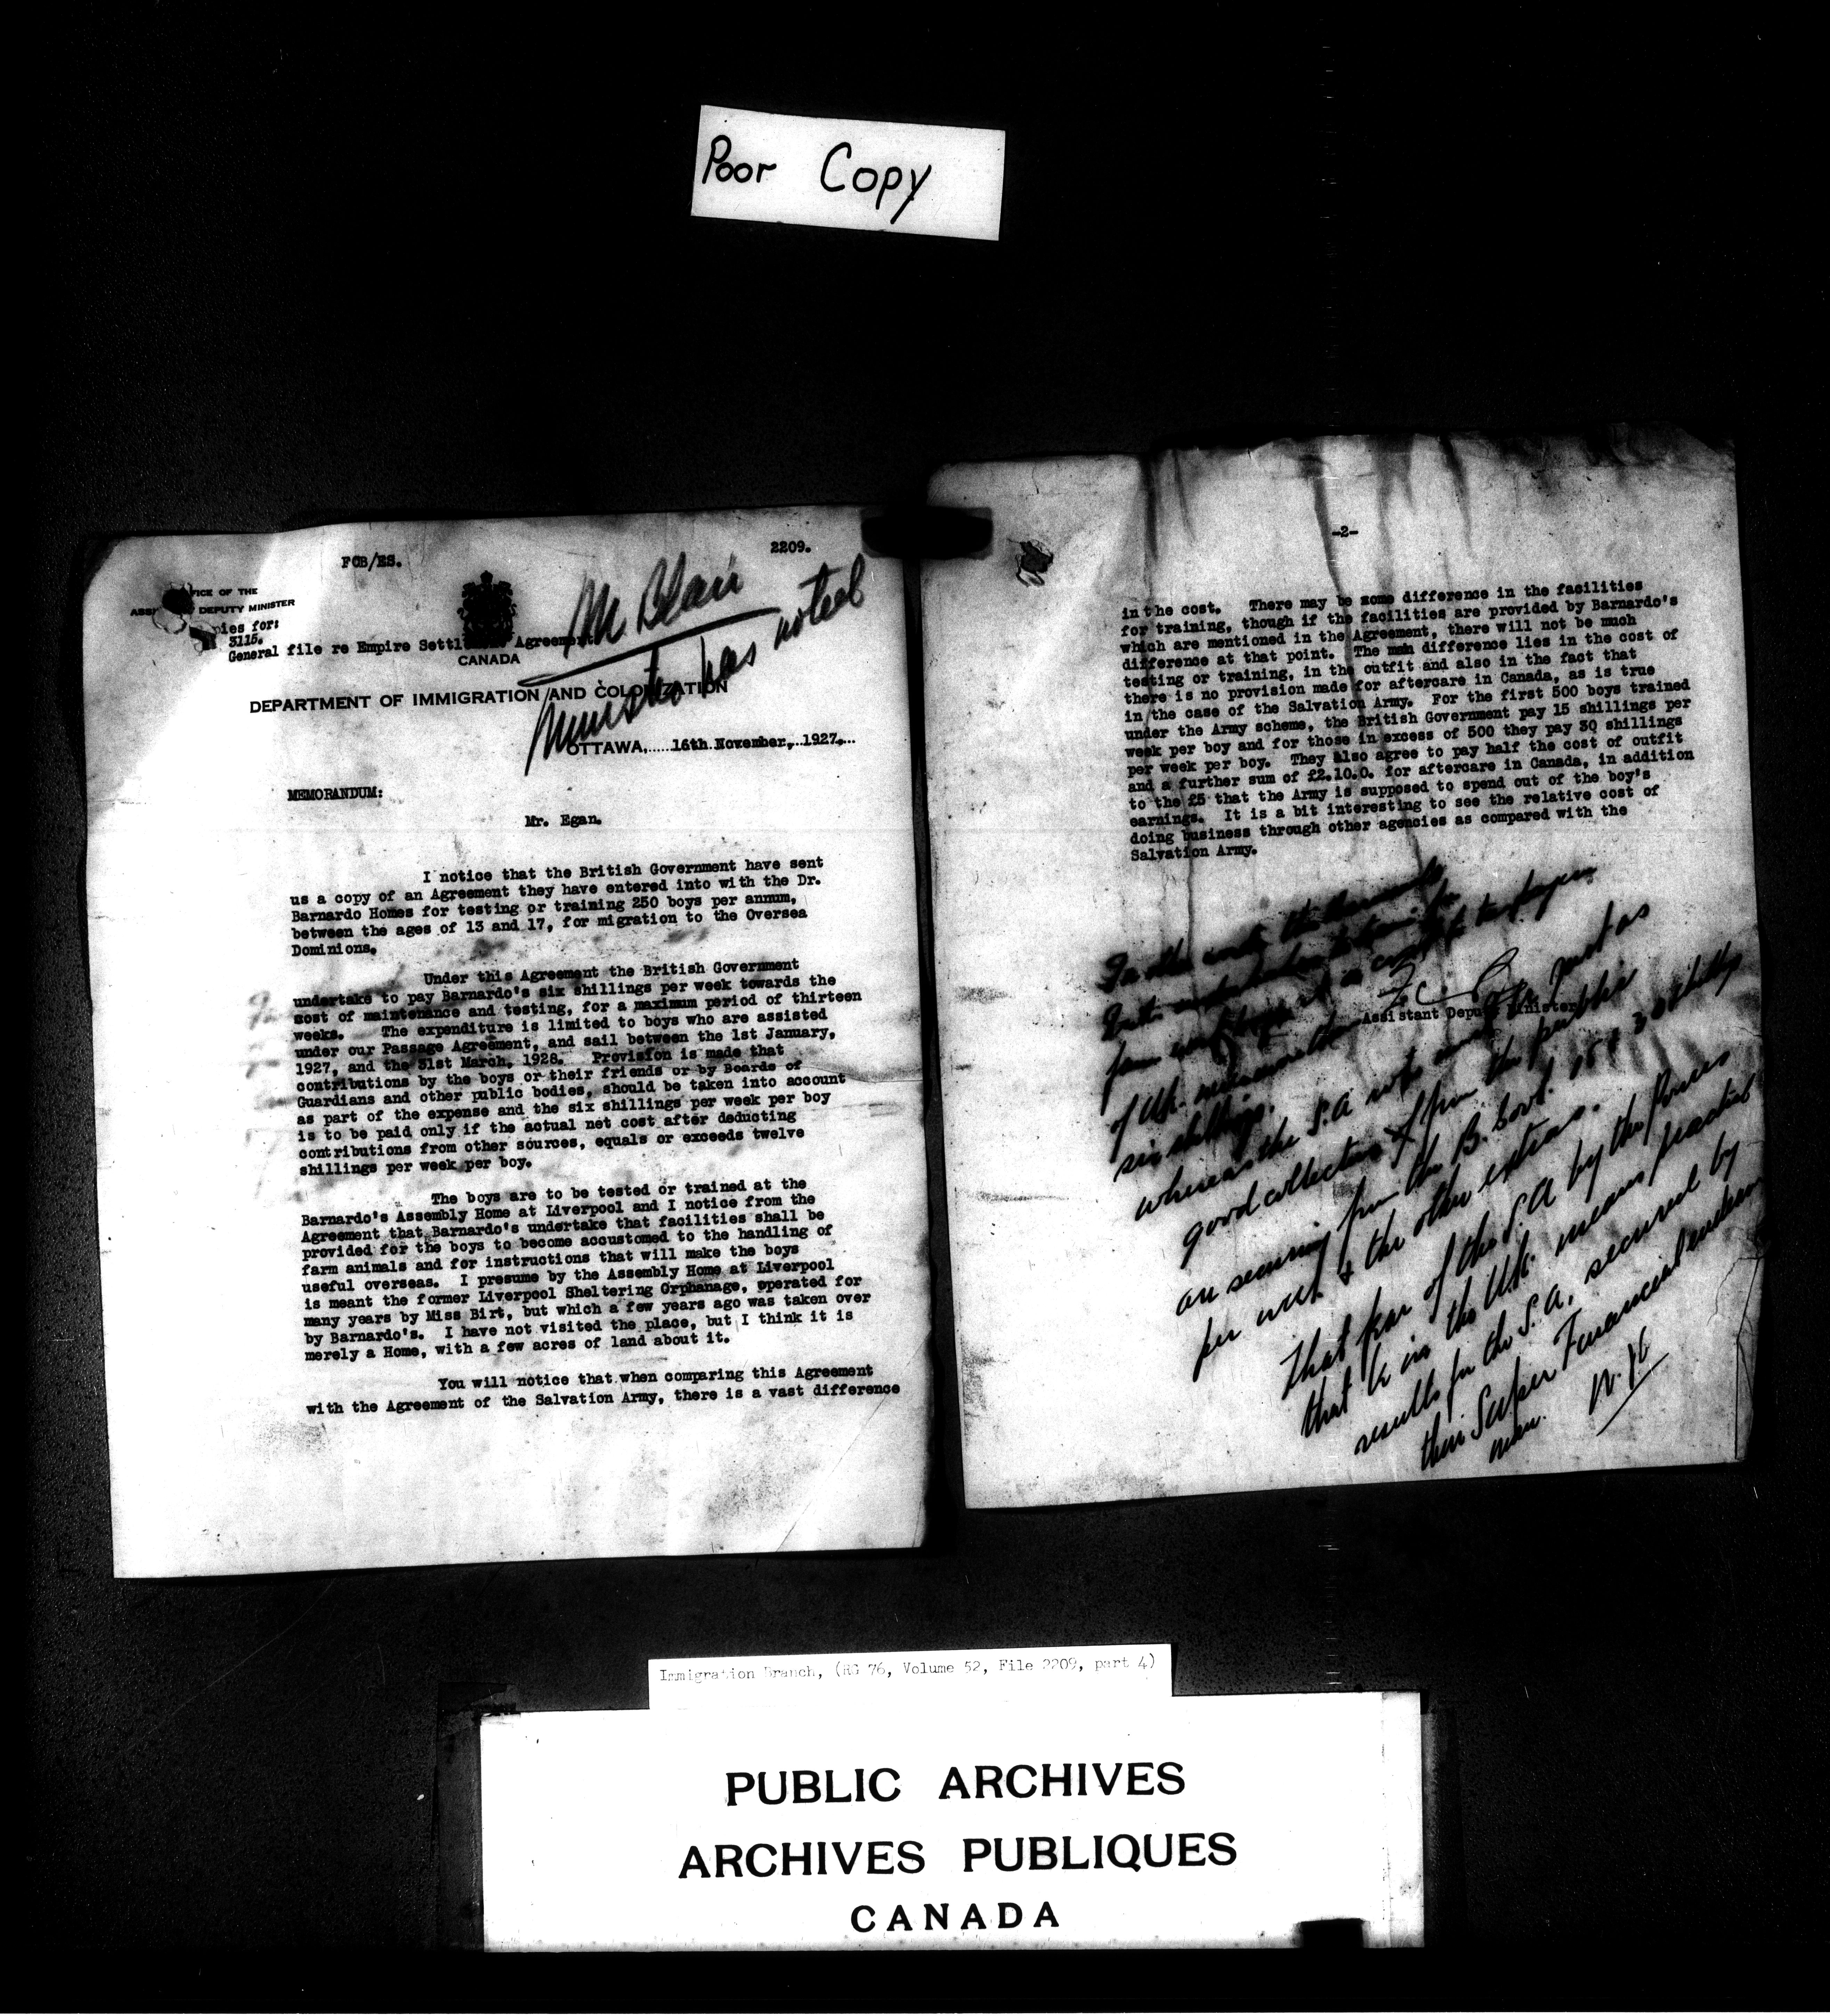 Poor Copy
FCB/ES.
2209.
OFFICE OF THE
DEPUTY MINISTER
Copies for:
3115.
General file re Empire Settl Agreement
CANADA
Mr Blair
Minister has noted
DEPARTMENT OF IMMIGRATION AND COLONIZATION
OTTAWA,.....16th November,..1927...
MEMORANDUM:
Mr. Egan.
I notice that the British Government have sent
us a copy of an Agreement they have entered into with the Dr.
Barnardo Homes for testing or training 250 boys per annum,
between the ages of 13 and 17, for migration to the Oversea
Dominions.
Under this Agreement the British Government
undertake to pay Barnardo's six shillings per week towards the
cost of maintenance and testing, for a maximum period of thirteen
weeks. The expenditure is limited to boys who are assisted
under our Passage Agreement, and sail between the 1st January,
1927, and the 31st March, 1928. Provision is made that
contributions by the boys or their friends or by Boards of
Guardians and other public bodies, should be taken into account
as part of the expense and the six shillings per week per boy
is to be paid only if the actual net cost after deducting
contributions from other sources, equals or exceeds twelve
shillings per week per boy.
The boys are to be tested or trained at the
Barnardo's Assembly Home at Liverpool and I notice from the
Agreement that Barnardo's undertake that facilities shall be
provided for the boys to become accustomed to the handling of
farm animals and for instructions that will make the boys
useful overseas. I presume by the Assembly Home at Liverpool
is meant the former Liverpool Sheltering Orphanage, operated for
many years by Miss Birt, but which a few years ago was taken over
by Barnardo's. I have not visited the place, but I think it is
merely a Home, with a few acres of land about it.
You will notice that when comparing this Agreement
with the Agreement of the Salvation Army, there is a vast difference
-2-
in the cost. There may be some difference in the facilities
for training, though if the facilities are provided by Barnardo's
which are mentioned in the Agreement, there will not be much
difference at that point. The main difference lies in the cost of
testing or training, in the outfit and also in the fact that
there is no provision made for aftercare in Canada, as is true
in the case of the Salvation Army. For the first 500 boys trained
under the Army scheme, the British Government pay 15 shillings per
week per boy and for those in excess of 500 they pay 30 shillings
per week per boy. They also agree to pay half the cost of outfit
and a further sum of £2.10.0. for aftercare in Canada, in addition
to the £5 that the Army is supposed to spend out of the boy's
earnings. It is a bit interesting to see the relative cost of
doing business through other agencies as compared with the
Salvation Army.
In other words the Barnardo
Instn undertakes to train for
farm work boys at a cost to taxpayers
Assistant Deputy Minister.
of U.K. of
six shillings.
whereas the S.A. not just as
good collectors from the public
are securing from the B. Govt. 15 & 30 shillings
per week & the other extras.
That fear of the S.A by the Powers
that be in the U.K. means practical
results for the S.A. secured by
their Super Financial
man.
Immigration Branch, (RG 76, Volume 52, File 2209, part 4)
PUBLIC ARCHIVES
ARCHIVES PUBLIQUES
CANADA